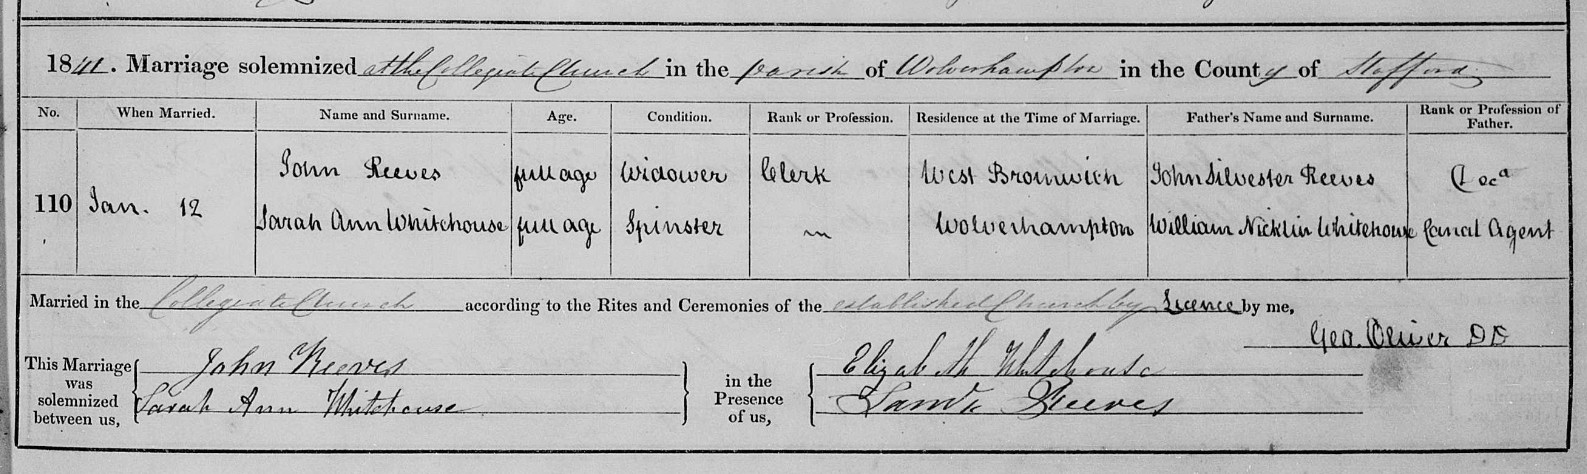 1841. Marriage solemnized at the Collegiate Church in the parish of Wolverhampton in the County of Stafford
No. When Married. Name and Surname. Age. Condition. Rank or Profession. Residence at the Time of Marriage. Father's Name and Surname. Rank or Profession of Father.
110 Jan. 12
John Reeves full age Widower Clerk West Bromwich John Silvester Reeves
Sarah Ann Whitehouse full age Spinster Wolverhampton William Nicklin Whitehouse Canal Agent
Married in the Collegiate Church according to the Rites and Ceremonies of the established Church by Licence by me,
Geo. Oliver DD
This Marriage was solemnized between us, John Reeves
Sarah Ann Whitehouse
in the Presence of us, Elizabeth Whitehouse
Reeves